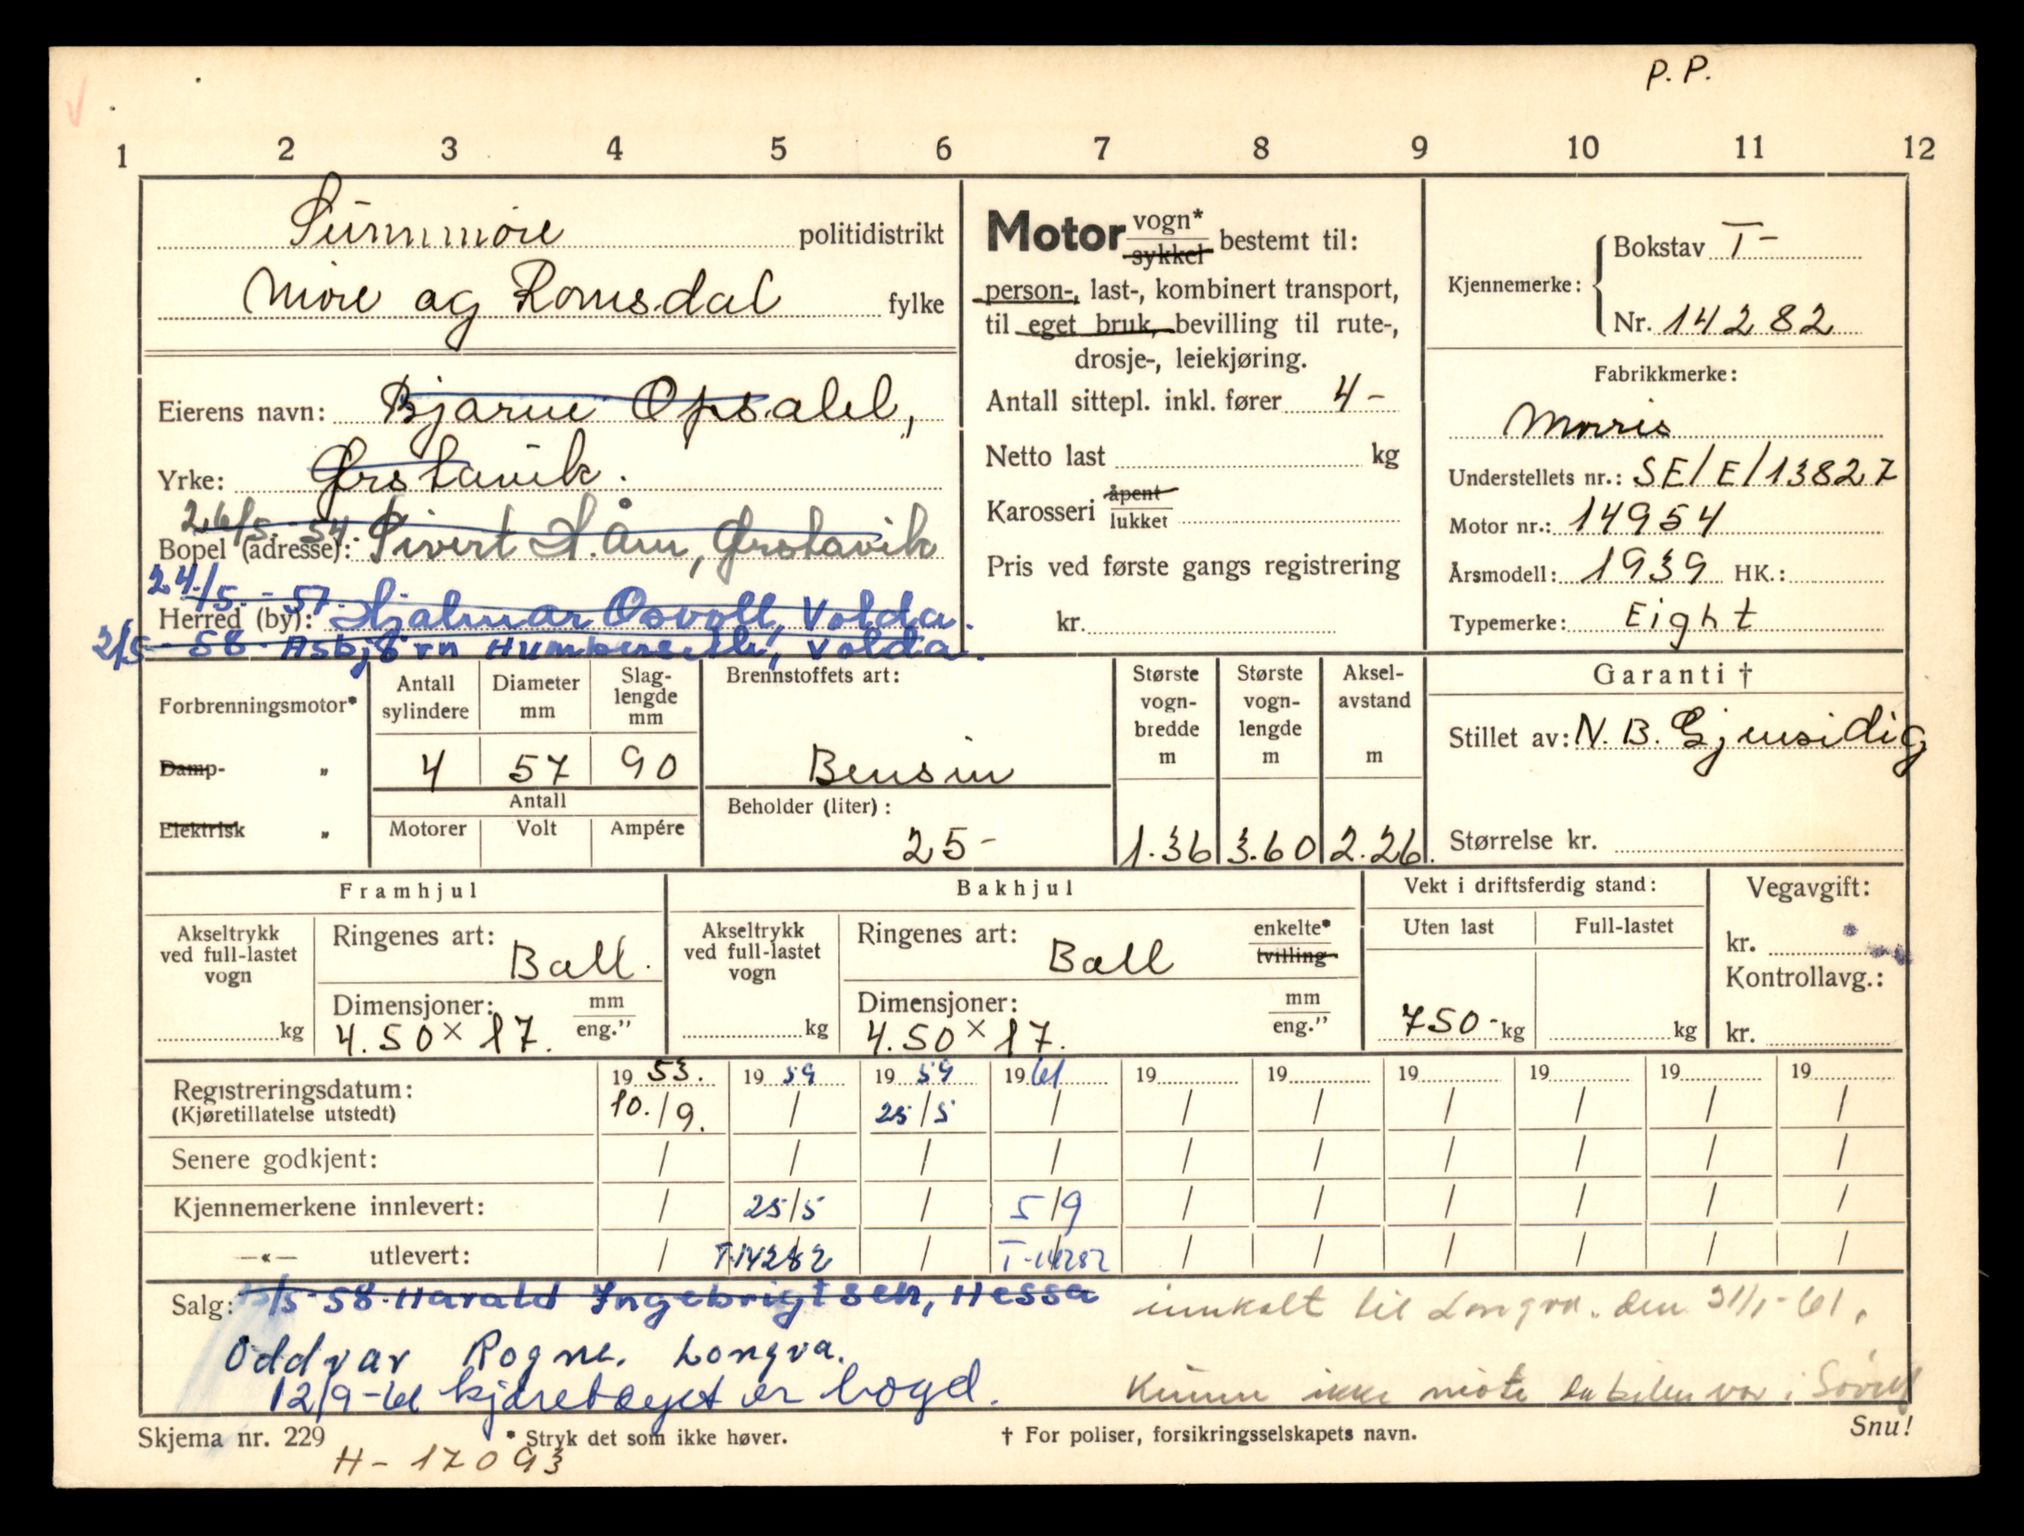 P. P.
1 2 3 4 5 6 7 8 9 10 11 12
Sunnmøre politidistrikt
Møre og Romsdal fylke
Eierens navn: Bjarne Opsahl,
Yrke: Ørstavik.
26/5-54. Sivert A. Åm, Ørstavik
Bopel (adresse):
24/5-57. Hjalmar Osvoll, Volda.
Herred (by):
2/5-58. Asbjørn Humberseth, Volda.
Motor vogn* bestemt til:
sykkel
person-, last-, kombinert transport,
til eget bruk, bevilling til rute-,
drosje-, leiekjøring.
Antall sittepl. inkl. fører 4-
Netto last kg
Karosseri åpent
lukket
Pris ved første gangs registrering
kr.
Kjennemerke: Bokstav T-
Nr. 14282
Fabrikkmerke:
Morris
Understellets nr.: SE/E/13827
Motor nr.: 14954
Årsmodell: 1939 HK.:
Typemerke: Eight
Forbrenningsmotor*
Damp- "
Elektrisk "
Antall sylindere
4
Diameter mm
57
Slag-lengde mm
90
Antall
Motorer Volt Ampére
Brennstoffets art:
Bensin
Beholder (liter):
25-
Største vogn-bredde m
1.36
Største vogn-lengde m
3.60
Aksel-avstand m
2.26.
Garanti †
Stillet av: N. B. Gjensidig
Størrelse kr.
Framhjul
Akseltrykk ved full-lastet vogn
kg
Ringenes art: Ball.
Dimensjoner: mm
4.50 x 17. eng."
Bakhjul
Akseltrykk ved full-lastet vogn
kg
Ringenes art: Ball enkelte*
tvilling
Dimensjoner: mm
4.50 x 17. eng."
Vekt i driftsferdig stand:
Uten last Full-lastet
750- kg kg
Vegavgift:
kr.
Kontrollavg.:
kr.
19 53. 19 59 19 59 19 61 19 19 19 19 19 19
Registreringsdatum:
(Kjøretillatelse utstedt) 10./9. / 25/5 / / / / / / /
Senere godkjent: / / / / / / / / / /
Kjennemerkene innlevert: / 25/5 / 5/9 / / / / / /
—«— utlevert: / T-14282 / T-14282 / / / / / /
Salg: /5-58. Harald Ingebrigtsen, Hessa
innkalt til Longva. den 31/1-61.
Oddvar Rogne. Longva.
12/9-61 kjøretøyet er hogd.
Kunne ikke møte da bilen var i Søvik
Skjema nr. 229 * Stryk det som ikke høver. † For poliser, forsikringsselskapets navn. Snu!
H-17093